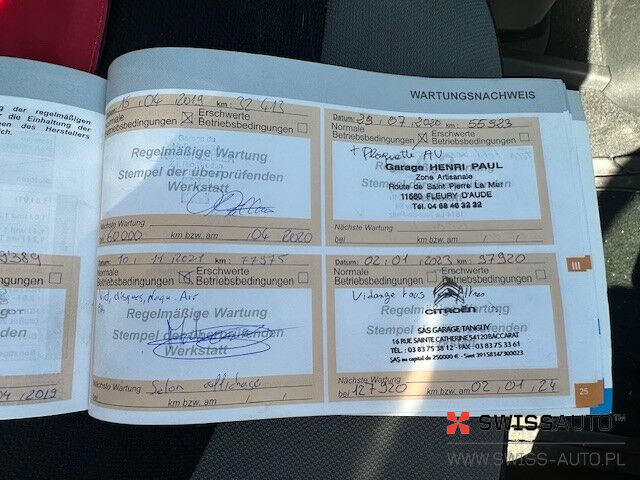 WARTUNGSNACHWEIS
ng der regelmäßigen
die Einhaltung der
en des Herstellers
ich.
16.04.2019 km: 32 413
Erschwerte
Betriebsbedingungen Betriebsbedingungen
Regelmäßige Wartung
Stempel der überprüfenden
Werkstatt
Nächste Wartung
60000 km bzw. am 04 2020
Datum: 29.07.2020 km: 55923
Normale Erschwerte
Betriebsbedingungen Betriebsbedingungen
+ Plaquette AV
Garage HENRI PAUL
Zone Artisanale
Route de Saint Pierre La Mer
11560 FLEURY D'AUDE
Tél. 04 68 46 32 32
Nächste Wartung
bei km bzw. am / /
9389
04.2019
Datum: 10.11.2021 km: 77975
Normale Erschwerte
Betriebsbedingungen Betriebsbedingungen
Vid, disques, plaq. Av
Regelmäßige Wartung
Stempel der überprüfenden
Werkstatt
Nächste Wartung Selon affichage
km bzw. am / /
Datum: 02.01.2023 km: 97920
Normale Erschwerte
Betriebsbedingungen Betriebsbedingungen
Vidange tous filtres
CITROËN
SAS GARAGE TANGUY
16 RUE SAINTE CATHERINE 54120 BACCARAT
TÉL.: 03 83 75 38 12 - FAX: 03 83 75 33 61
SAS au capital de 250000 € - Siret 39158347300023
Nächste Wartung
bei 127920 km bzw. am 02.01.24
III
25
SWISSAUTO™
WWW.SWISS-AUTO.PL